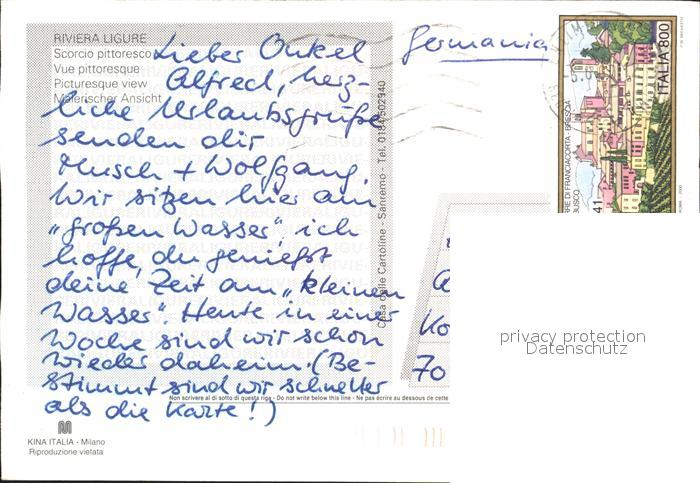 RIVIERA LIGURE
Scorcio pittoresco
Vue pittoresque
Picturesque view
Malerischer Ansicht
Lieber Onkel
Alfred, herz-
liche Urlaubsgrüße
senden dir
Musch + Wolfgang.
Wir sitzen hier am
"großen Wasser" ich
hoffe, du genießt
deine Zeit am "kleinen
Wasser". Heute in einer
Woche sind wir schon
wieder daheim. (Be-
stimmt sind wir schneller
als die Karte!)
Non scrivere al di sotto di questa riga - Do not write below this line - Ne pas écrire au dessous de cette
KINA ITALIA - Milano
Riproduzione vietata
Casa delle Cartoline - Sanremo - Tel. 0184/502940
Germania
ITALIA 800
RE DI FRANCIACORTA - BRESCIA
BUSCO
41
Ko
70
privacy protection
Datenschutz